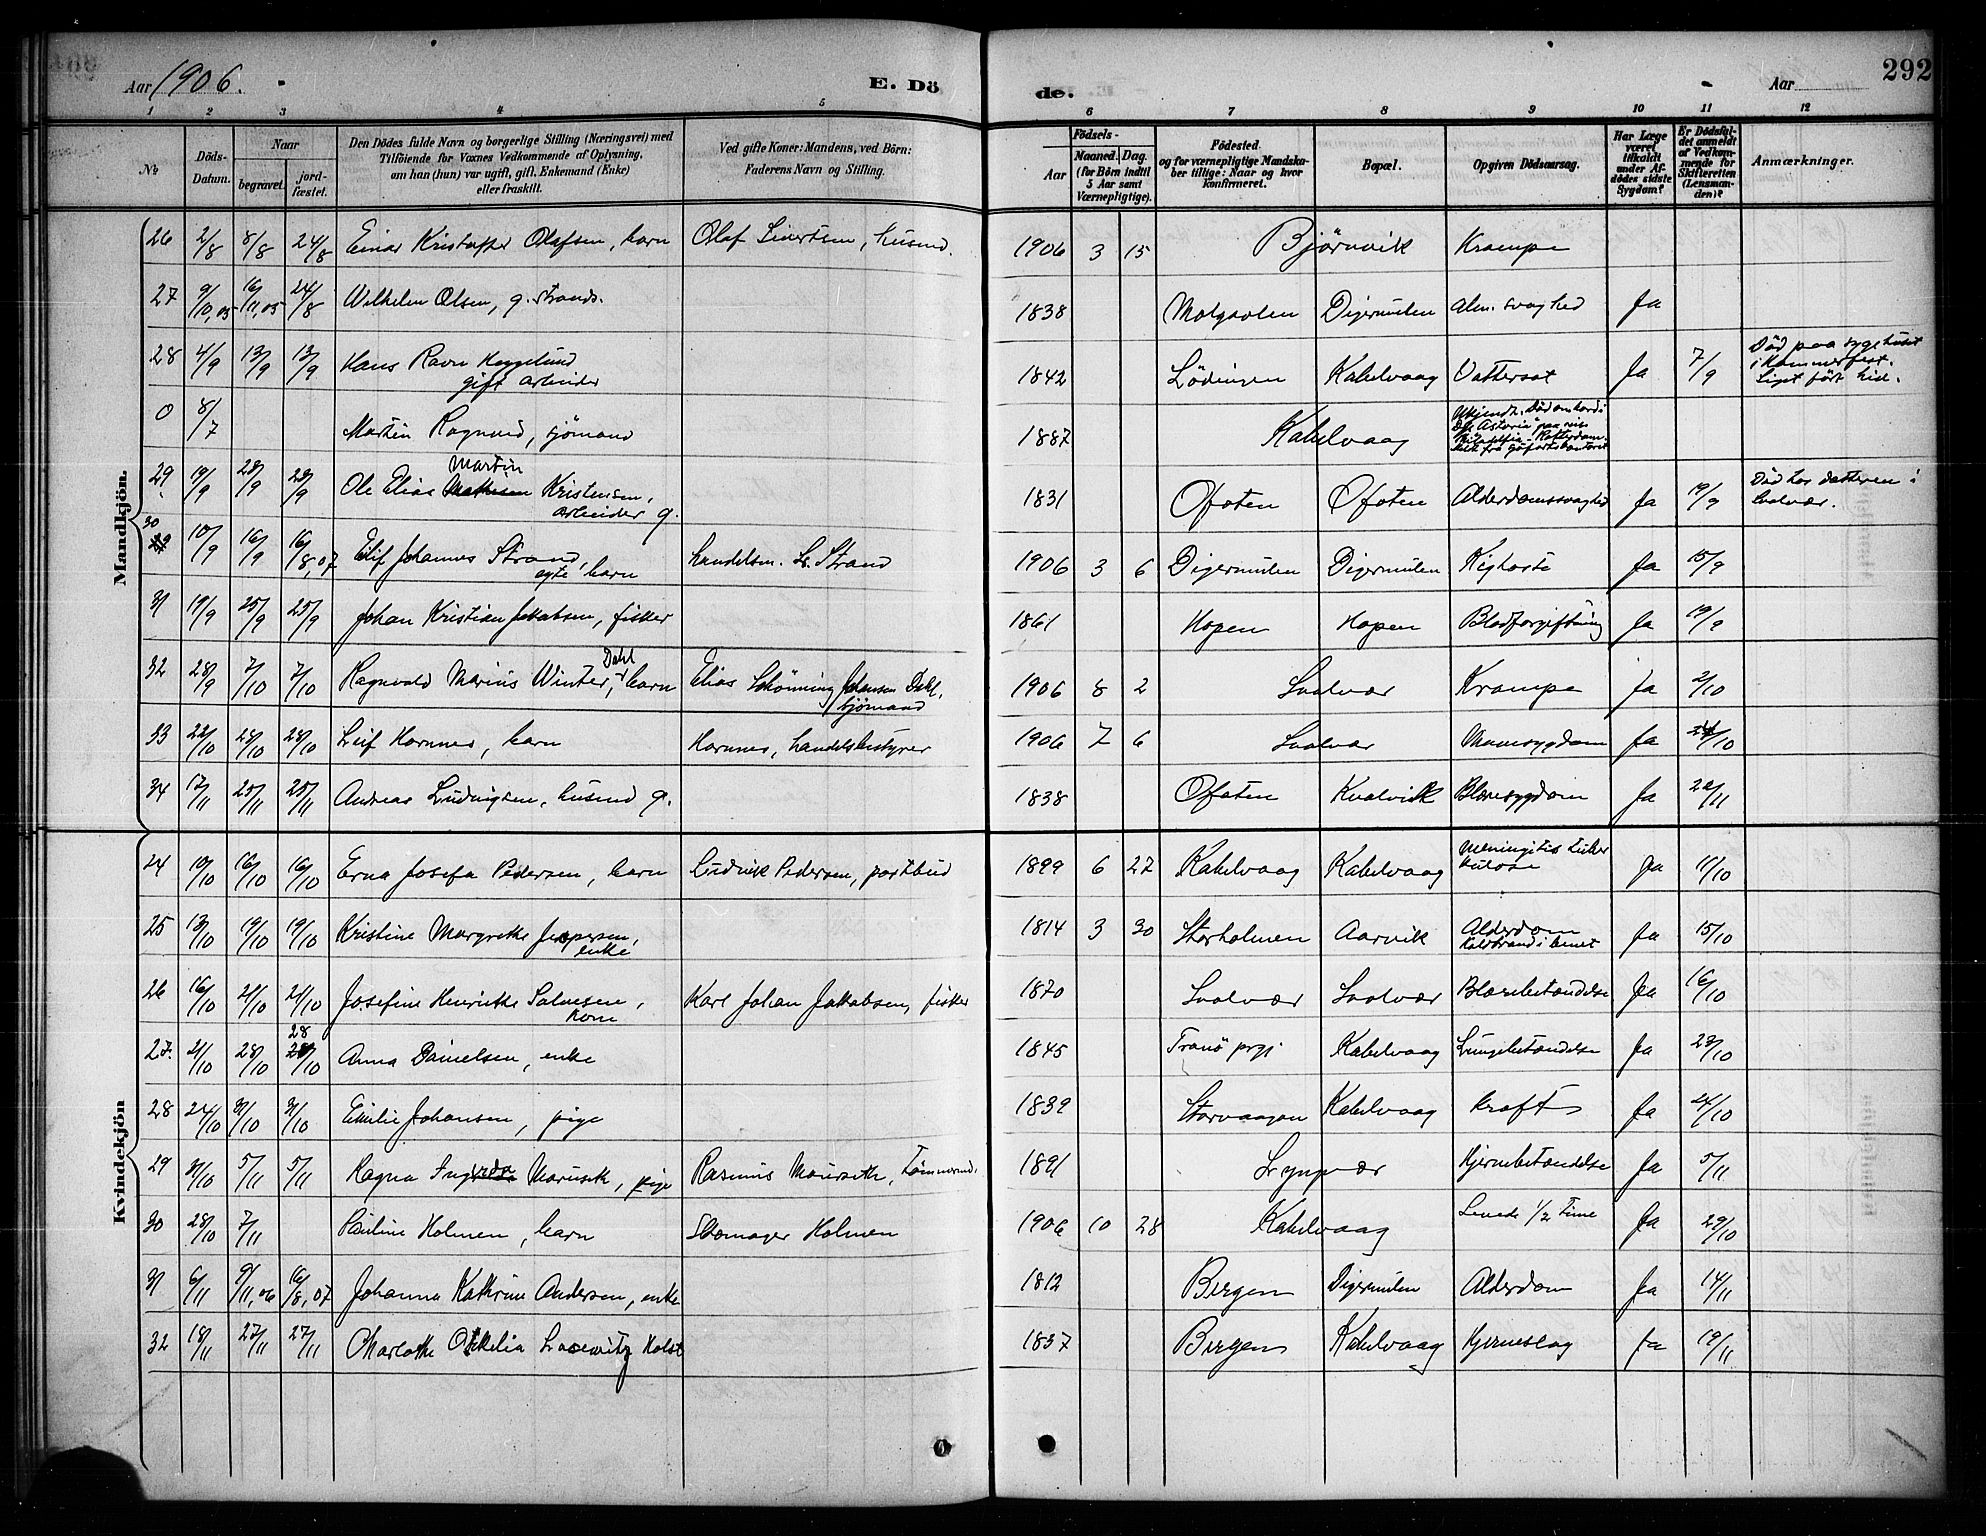 Aar 1906.
E. Dö
de.
Aar
292
1 2 3 4 5 6 7 8 9 10 11 12
No
Döds-Datum.
Naar
begravet.
jordfæstet.
Den Dödes fulde Navn og borgerlige Stilling (Næringsvei) med
Tilföiende for Voxnes Vedkommende af Oplysning,
om han (hun) var ugift, gift, Enkemand (Enke)
eller fraskilt.
Ved gifte Koner: Mandens, ved Börn:
Faderens Navn og Stilling.
Födsels-
Aar
Maaned. Dag.
(for Börn indtil
5 Aar samt
Værnepligtige).
Födested
og for værnepligtige Mandska-
ber tillige: Naar og hvor
konfirmeret.
Bopæl.
Opgiven Dödsaarsag.
Har Læge
været
tilkaldt
under Af-
dödes sidste
Sygdom?
Er Dödsfal-
det anmeldt
af Vedkom-
mende for
Skifteretten
(Lensman-
den)?
Anmærkninger.
Mandkjön.
26 2/8 8/8 24/8 Einar Kristoffer Olafsen, barn Olaf Sivertsen, husmd. 1906 3 15 Bjørnvik Krampe
27 9/10,05 16/11,05 24/8 Wilhelm Olsen, g. strands. 1838 Molgavlen Digermulen Alm. svaghed Ja
28 4/9 13/9 13/9 Hans Ravn Heggelund
gift arbeider 1842 Lödingen Kabelvaag Vattersot Ja 7/9 Död paa sygehuset
i Hammerfest.
Liget fört hid.
0 8/7 Martin Ragnvd, sjömand 1887 Kabelvaag Ukjendt. Död ombord i
D/S "Astoria" paa reise
Philadelfia - Rotterdam.
29. 19/9 28/9 28/9 Ole Elias Martin Kristensen,
arbeider g. 1831 Ofoten Ofoten Alderdomssvaghed Ja 19/9 Död hos datteren i
Svolvær.
30 10/9 16/9 16/8,07 Elif Johannes Strand,
egte barn handelsm. L. Strand 1906 3 6 Digermulen Digermulen Kighoste Ja 15/9
31 19/9 25/9 25/9 Johan Kristian Jakobsen, fisker 1861 Hopen Hopen Blodforgiftning Ja 19/9
32 28/9 7/10 7/10 Ragnvald Marius Winter Dahl, barn Elias Schönning Johansen Dahl,
sjömand 1906 8 2 Svolvær Krampe Ja 2/10
33 22/10 28/10 28/10 Leif Hornnes, barn Hornnes, handelsbestyrer 1906 7 6 Svolvær Mavesygdom Ja 24/10
34 17/11 25/11 25/11 Andreas Ludvigsen, husmd g. 1838 Ofoten Kvalvik Blæresygdom Ja 22/11
Kvindekjön
24 10/10 16/10 16/10 Erna Josefa Pedersen, barn Ludvik Pedersen, postbud 1899 6 27 Kabelvaag Kabelvaag Meningitis tuber
kulose Ja 11/10
25 13/10 19/10 19/10 Kristine Margrethe Jespersen,
enke 1814 3 30 Storholmen Aarvik Alderdom
Koldbrand i benet Ja 15/10
26 16/10 21/10 21/10 Josefine Henriette Salvesen,
kone Karl Johan Jakobsen, fisker 1870 Svolvær Svolvær Blærebetændelse Ja 16/10
27. 21/10 28/10 28/10 Anna Danielsen, enke 1845 Tranö prgj Kabelvaag Lungebetændelse Ja 23/10
28 24/10 31/10 31/10 Emilie Johansen, pige 1839 Storvaagan Kabelvaag Kræft Ja 24/10
29 31/10 5/11 5/11 Ragna Maruseth, pige Rasmus Mauseth, Tömmermd. 1891 Lyngvær Hjernebetændelse Ja 5/11
30 28/10 7/11 Pauline Holmen, barn Skomager Holmen 1906 10 28 Kabelvaag Levede 1/2 Time Ja 29/10
31 6/11 9/11,06 16/8,07 Johanna Kathrine Andersen, enke 1812 Bergen Digermulen Alderdom Ja 14/11
32 18/11 27/11 27/11 Charlotte Othelia Holst 1837 Bergen Kabelvaag Hjerneslag Ja 19/11